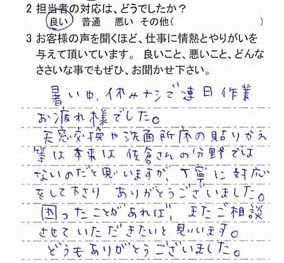 2 担当者の対応は、どうでしたか？
良い 普通 悪い その他(
3 お客様の声を聞くほど、仕事に情熱とやりがいを
与えて頂いています。良いこと、悪いこと、どんな
ささいな事でもぜひ、お聞かせ下さい。
暑い中、休みナシで連日作業
お疲れ様でした。
天窓交換や洗面所床の貼りかえ
等は本来は佐倉さんの分野では
ないのだと思いますが、丁寧に対応
をして下さり ありがとうございました。
困ったことがあれば、またご相談
させていただきたいと思います。
どうもありがとうございました。